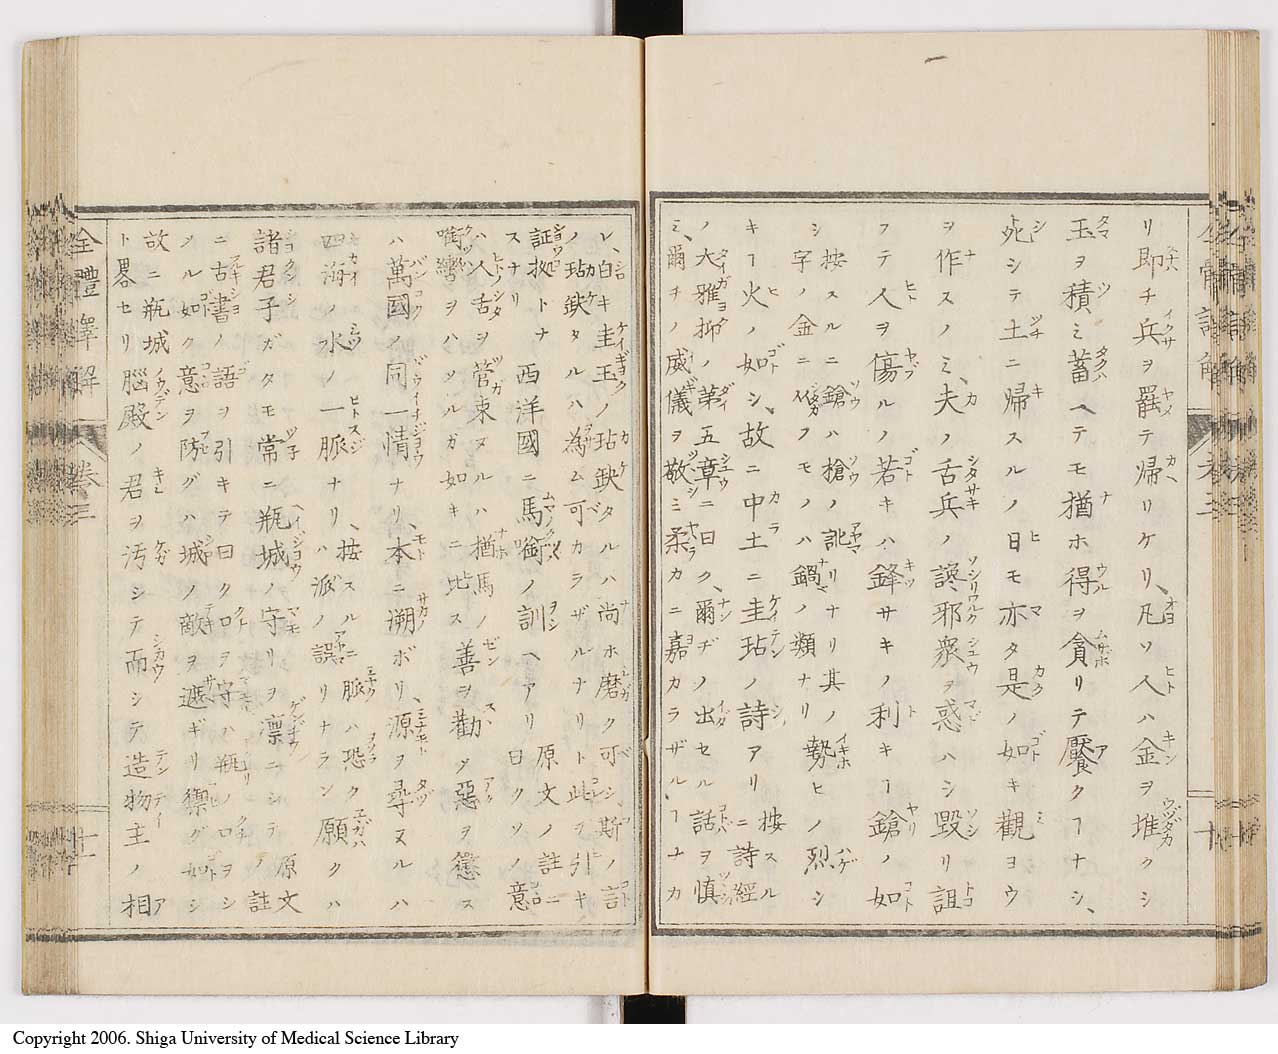 リ即チ兵ヲ罷テ帰リケリ、凡ソ人ハ金ヲ堆クシ
玉ヲ積ミ蓄ヘテモ猶ホ得ヲ貪リテ饜クヿナシ、
死シテ土ニ帰スルノ日モ亦タ是ノ如キ觀ヨウ
ヲ作スノミ、夫ノ舌兵ノ讒邪衆ヲ惑ハシ毀リ詛
フテ人ヲ傷ルノ若キハ鋒サキノ利キヿ鎗ノ如
シ 按スルニ鎗ハ槍ノ訛リナリ其ノ
字ノ金ニ从フモノハ鍋ノ類ナリ 勢ヒノ烈シ
キヿ火ノ如シ、故ニ中土ニ圭玷ノ詩アリ 按スル
ニ詩經
ノ大雅抑ノ第五章ニ曰ク、爾ヂノ出セル話ヲ慎
ミ、爾チノ威儀ヲ敬ミ柔カニ嘉カラザルヿナカ
レ、白キ圭玉ノ玷缺タルハ尚ホ磨ク可シ、斯ノ言
ノ玷缺タルハ為ム可カラザルナリト此ヲ引キ
証拠トナ
スナリ 西洋國ニ馬銜ノ訓ヘアリ 原文ノ註ニ
曰クソノ意
ハ人舌ヲ管束スルハ猶馬ノ
銜轡ヲハツルガ如キニ比ス 善ヲ勸タ惡ヲ懲ス
ハ萬國ノ同一情ナリ、本ニ溯ボリ、源ヲ尋ヌルハ
四海ノ水ノ一脈ナリ、按スルニ脈ハ恐ク
ハ派ノ誤リナラン 願クハ
諸君子ガタモ常ニ瓶城ノ守リヲ凛ニシテ 原文
ノ註
ニ古書ノ語ヲ引キテ曰ク口ヲ守ハ瓶ノ口ヲシ
ツルガ如ク意ヲ防グハ城ノ敵ヲ遮ギリ禦グ如シ
故ニ瓶城
ト畧セリ 腦殿ノ君ヲ汚シテ而シテ造物主ノ相
全體譯解
卷三
十一